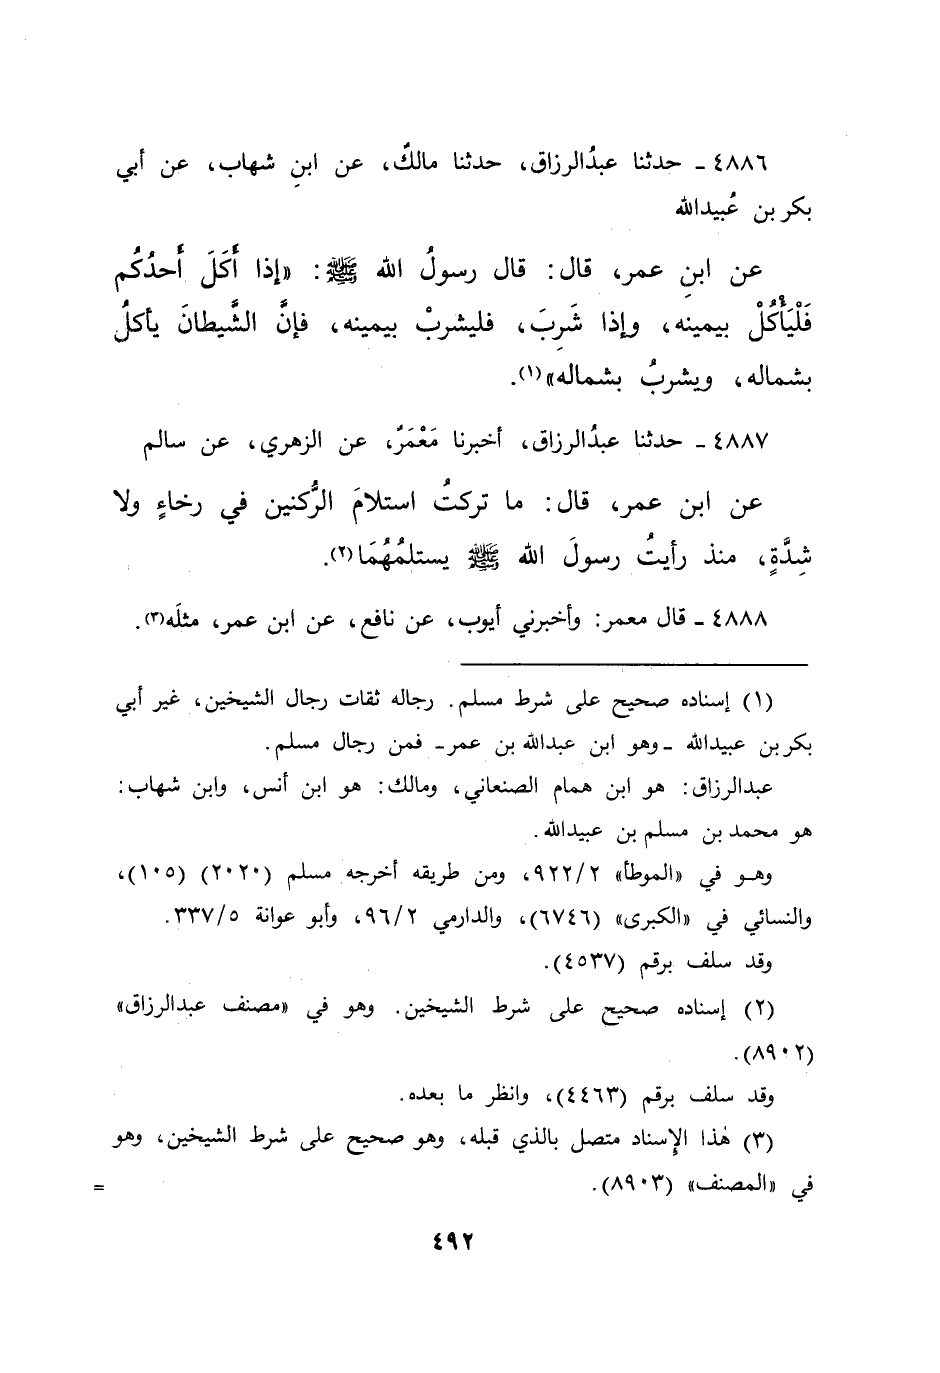 ٤٨٨٦ ـ حدثنا عبدُالرزاق، حدثنا مالكٌ، عن ابنِ شهاب، عن أبي
بكر بن عُبيدالله
عن ابنِ عمر، قال: قال رسولُ الله ﷺ: «إذا أَكَلَ أَحدُكُم
فَلْيَأْكُلْ بيمينه، وإذا شَرِبَ، فليشربْ بيمينه، فإنَّ الشَّيطانَ يأكلُ
بشماله، ويشربُ بشماله»(١).
٤٨٨٧ ـ حدثنا عبدُالرزاق، أخبرنا مَعْمَرٌ، عن الزهري، عن سالم
عن ابن عمر، قال: ما تركتُ استلامَ الرُّكنين في رخاءٍ ولا
شِدَّةٍ، منذ رأيتُ رسولَ الله ﷺ يستلمُهُمَا(٢).
٤٨٨٨ ـ قال معمر: وأخبرني أيوب، عن نافع، عن ابن عمر، مثلَه(٣).
(١) إسناده صحيح على شرط مسلم. رجاله ثقات رجال الشيخين، غير أبي
بكر بن عبيدالله ـ وهو ابن عبدالله بن عمر ـ فمن رجال مسلم.
عبدالرزاق: هو ابن همام الصنعاني، ومالك: هو ابن أنس، وابن شهاب:
هو محمد بن مسلم بن عبيدالله.
وهـو في «الموطأ» ٩٢٢/٢، ومن طريقه أخرجه مسلم (٢٠٢٠) (١٠٥)،
والنسائي في «الكبرى» (٦٧٤٦)، والدارمي ٩٦/٢، وأبو عوانة ٣٣٧/٥.
وقد سلف برقم (٤٥٣٧).
(٢) إسناده صحيح على شرط الشيخين. وهو في «مصنف عبدالرزاق»
(٨٩٠٢).
وقد سلف برقم (٤٤٦٣)، وانظر ما بعده.
(٣) هٰذا الإسناد متصل بالذي قبله، وهو صحيح على شرط الشيخين، وهو
في «المصنف» (٨٩٠٣). =
٤٩٢